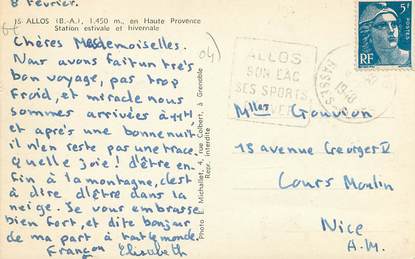 8 Février.
16 ALLOS (B.-A.), 1.450 m., en Haute Provence
Station estivale et hivernale
Chères Mesdemoiselles.
Nous avons fait un très
bon voyage, pas trop
froid, et miracle nous
sommes arrivées à 11H,
et après une bonne nuit
il n'en reste pas une trace.
Quelle joie! d'être en-
fin à la montagne, c'est
à dire d'être dans la
neige. Je vous embrasse
bien fort, et dite bonjour
de ma part à tout le monde.
Elisabeth
(04)
Photo E. Michallet, 4, rue Colbert, à Grenoble
Repr. interdite
ALLOS
SON LAC
SES SPORTS
D'HIVER
5F
RF
POSTES
Mlles
15 avenue Georges V
Cours Moulin
Nice
A.M.